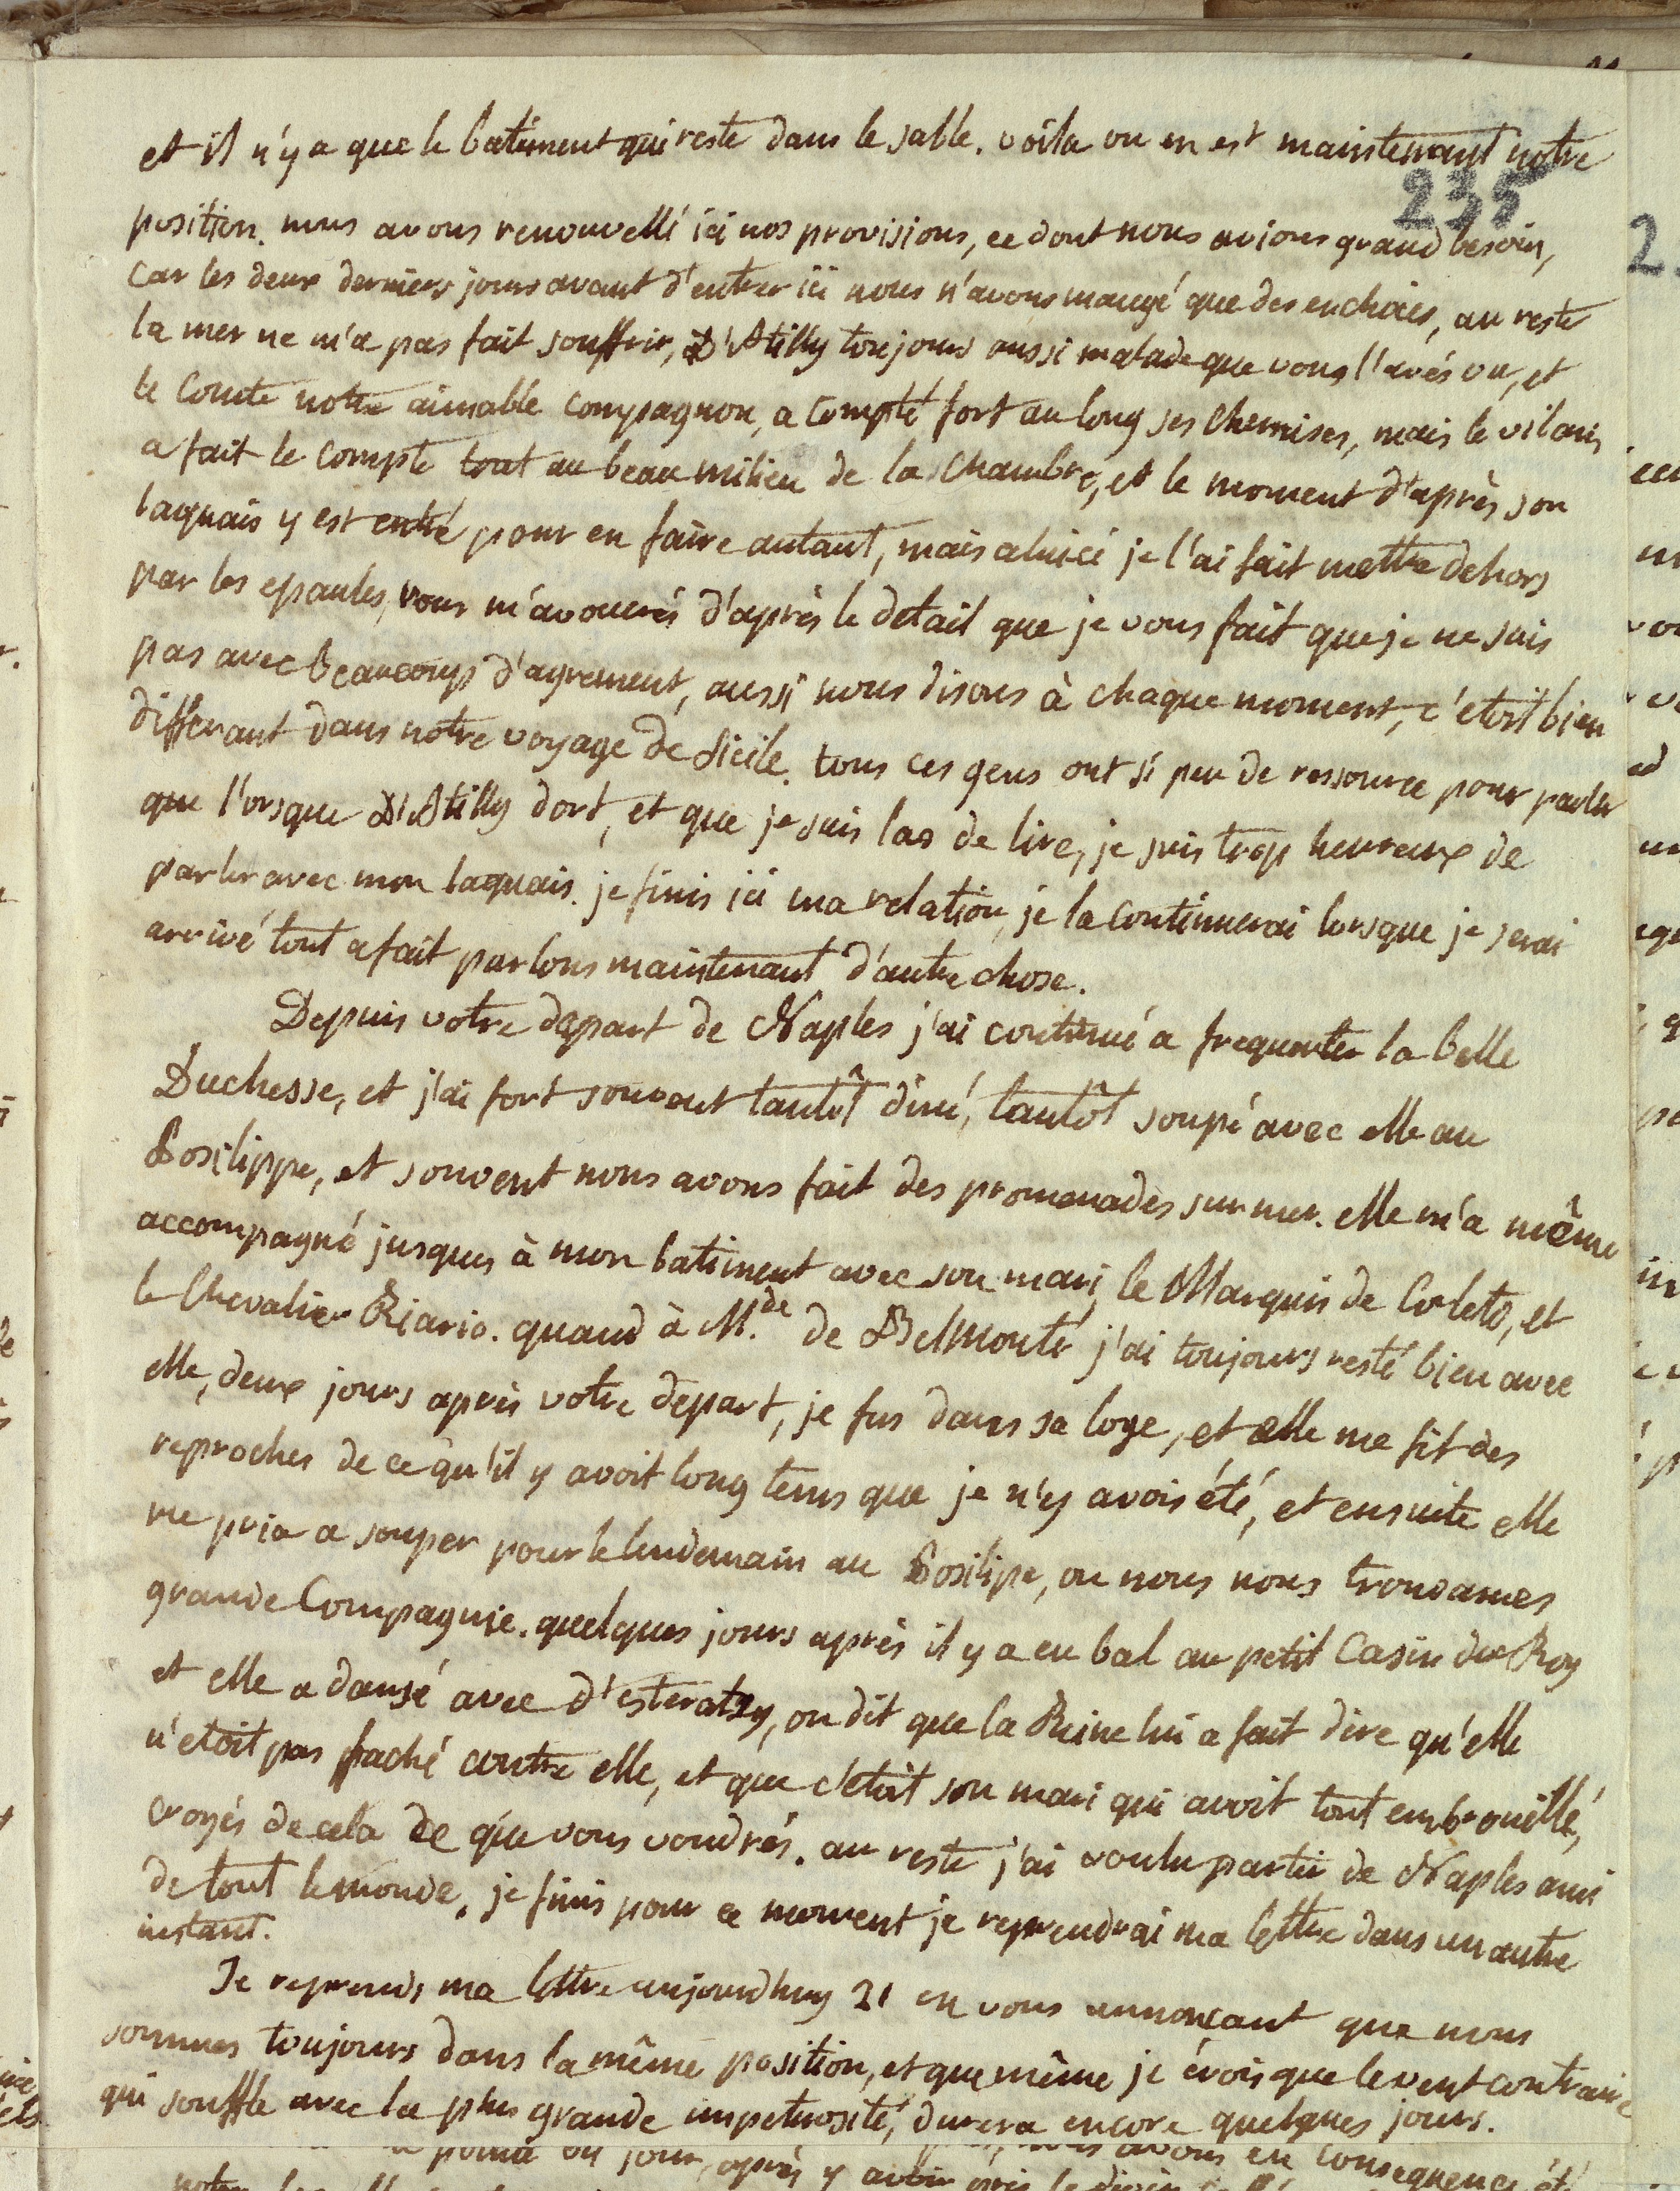 et il n'y a que le batiment qui reste dans le sable. voila ou en est maintenant notre
235
position. nous avons renouvellé ici nos provisions, ce dont nous avions grand besoin,
car les deux derniers jours avant d'entrer ici nous n'avons mangé que des enchoies, au reste
la mer ne m'a pas fait souffrir, D'Atilly toujours aussi malade que vous l'avés vu, et
le Comte notre aimable compagnon, a compté fort au long ses chemises, mais le vilain
a fait le compte tout au beau milieu de la chambre, et le moment d'après son
laquais y est entré pour en faire autant, mais a lui ci je l'ai fait mettre dehors
par les epaules, vous m'avouerés d'après le detail que je vous fait que je ne suis
pas avec beaucoup d'agrement, aussi nous disons à chaque moment, c'etoit bien
differant dans notre voyage de Sicile. tous ces gens ont si peu de ressource pour parler
que l'orsque D'Atilly dort, et que je suis las de lire, je suis trop heureux de
parler avec mon laquais. je finis ici ma relation, je la continuerai lorsque je serai
arrivé tout a fait parlons maintenant d'autre chose.
Depuis votre depart de Naples j'ai continué a frequenter la belle
Duchesse, et j'ai fort souvent tantôt diné, tantôt soupé avec elle au
Posilippe, et souvent nous avons fait des promenades sur mer. elle m'a même
accompagné jusques à mon batiment avec son mari, le Marquis de Corleto, et
le Chevalier Riario. quand à M.de de Belmonte j'ai toujours resté bien avec
elle, deux jours après votre depart, je fus dans sa loge, et elle me fit des
reproches de ce qu'il y avoit long tems que je n'y avois été, et ensuite elle
me pria a souper pour le lendemain au Posilipe, ou nous nous trouvames
grande Compagnie. quelques jours après il y a eu bal au petit Casin du Roy
et elle a dansé avec d'esteratzy, on dit que la Reine lui a fait dire qu'elle
n'etoit pas faché contre elle, et que c'etoit son mari qui avoit tout embrouillé,
croyés de cela ce que vous voudrés. au reste j'ai voulu partir de Naples ami
de tout le monde. je finis pour ce moment je reprendrai ma lettre dans un autre
instant.
Je reprends ma lettre aujourdhuy 21 en vous annonçant que nous
sommes toujours dans la même position, et que même je crois que le vent contraire
qui souffle avec la plus grande impetuosité, durera encore quelques jours.